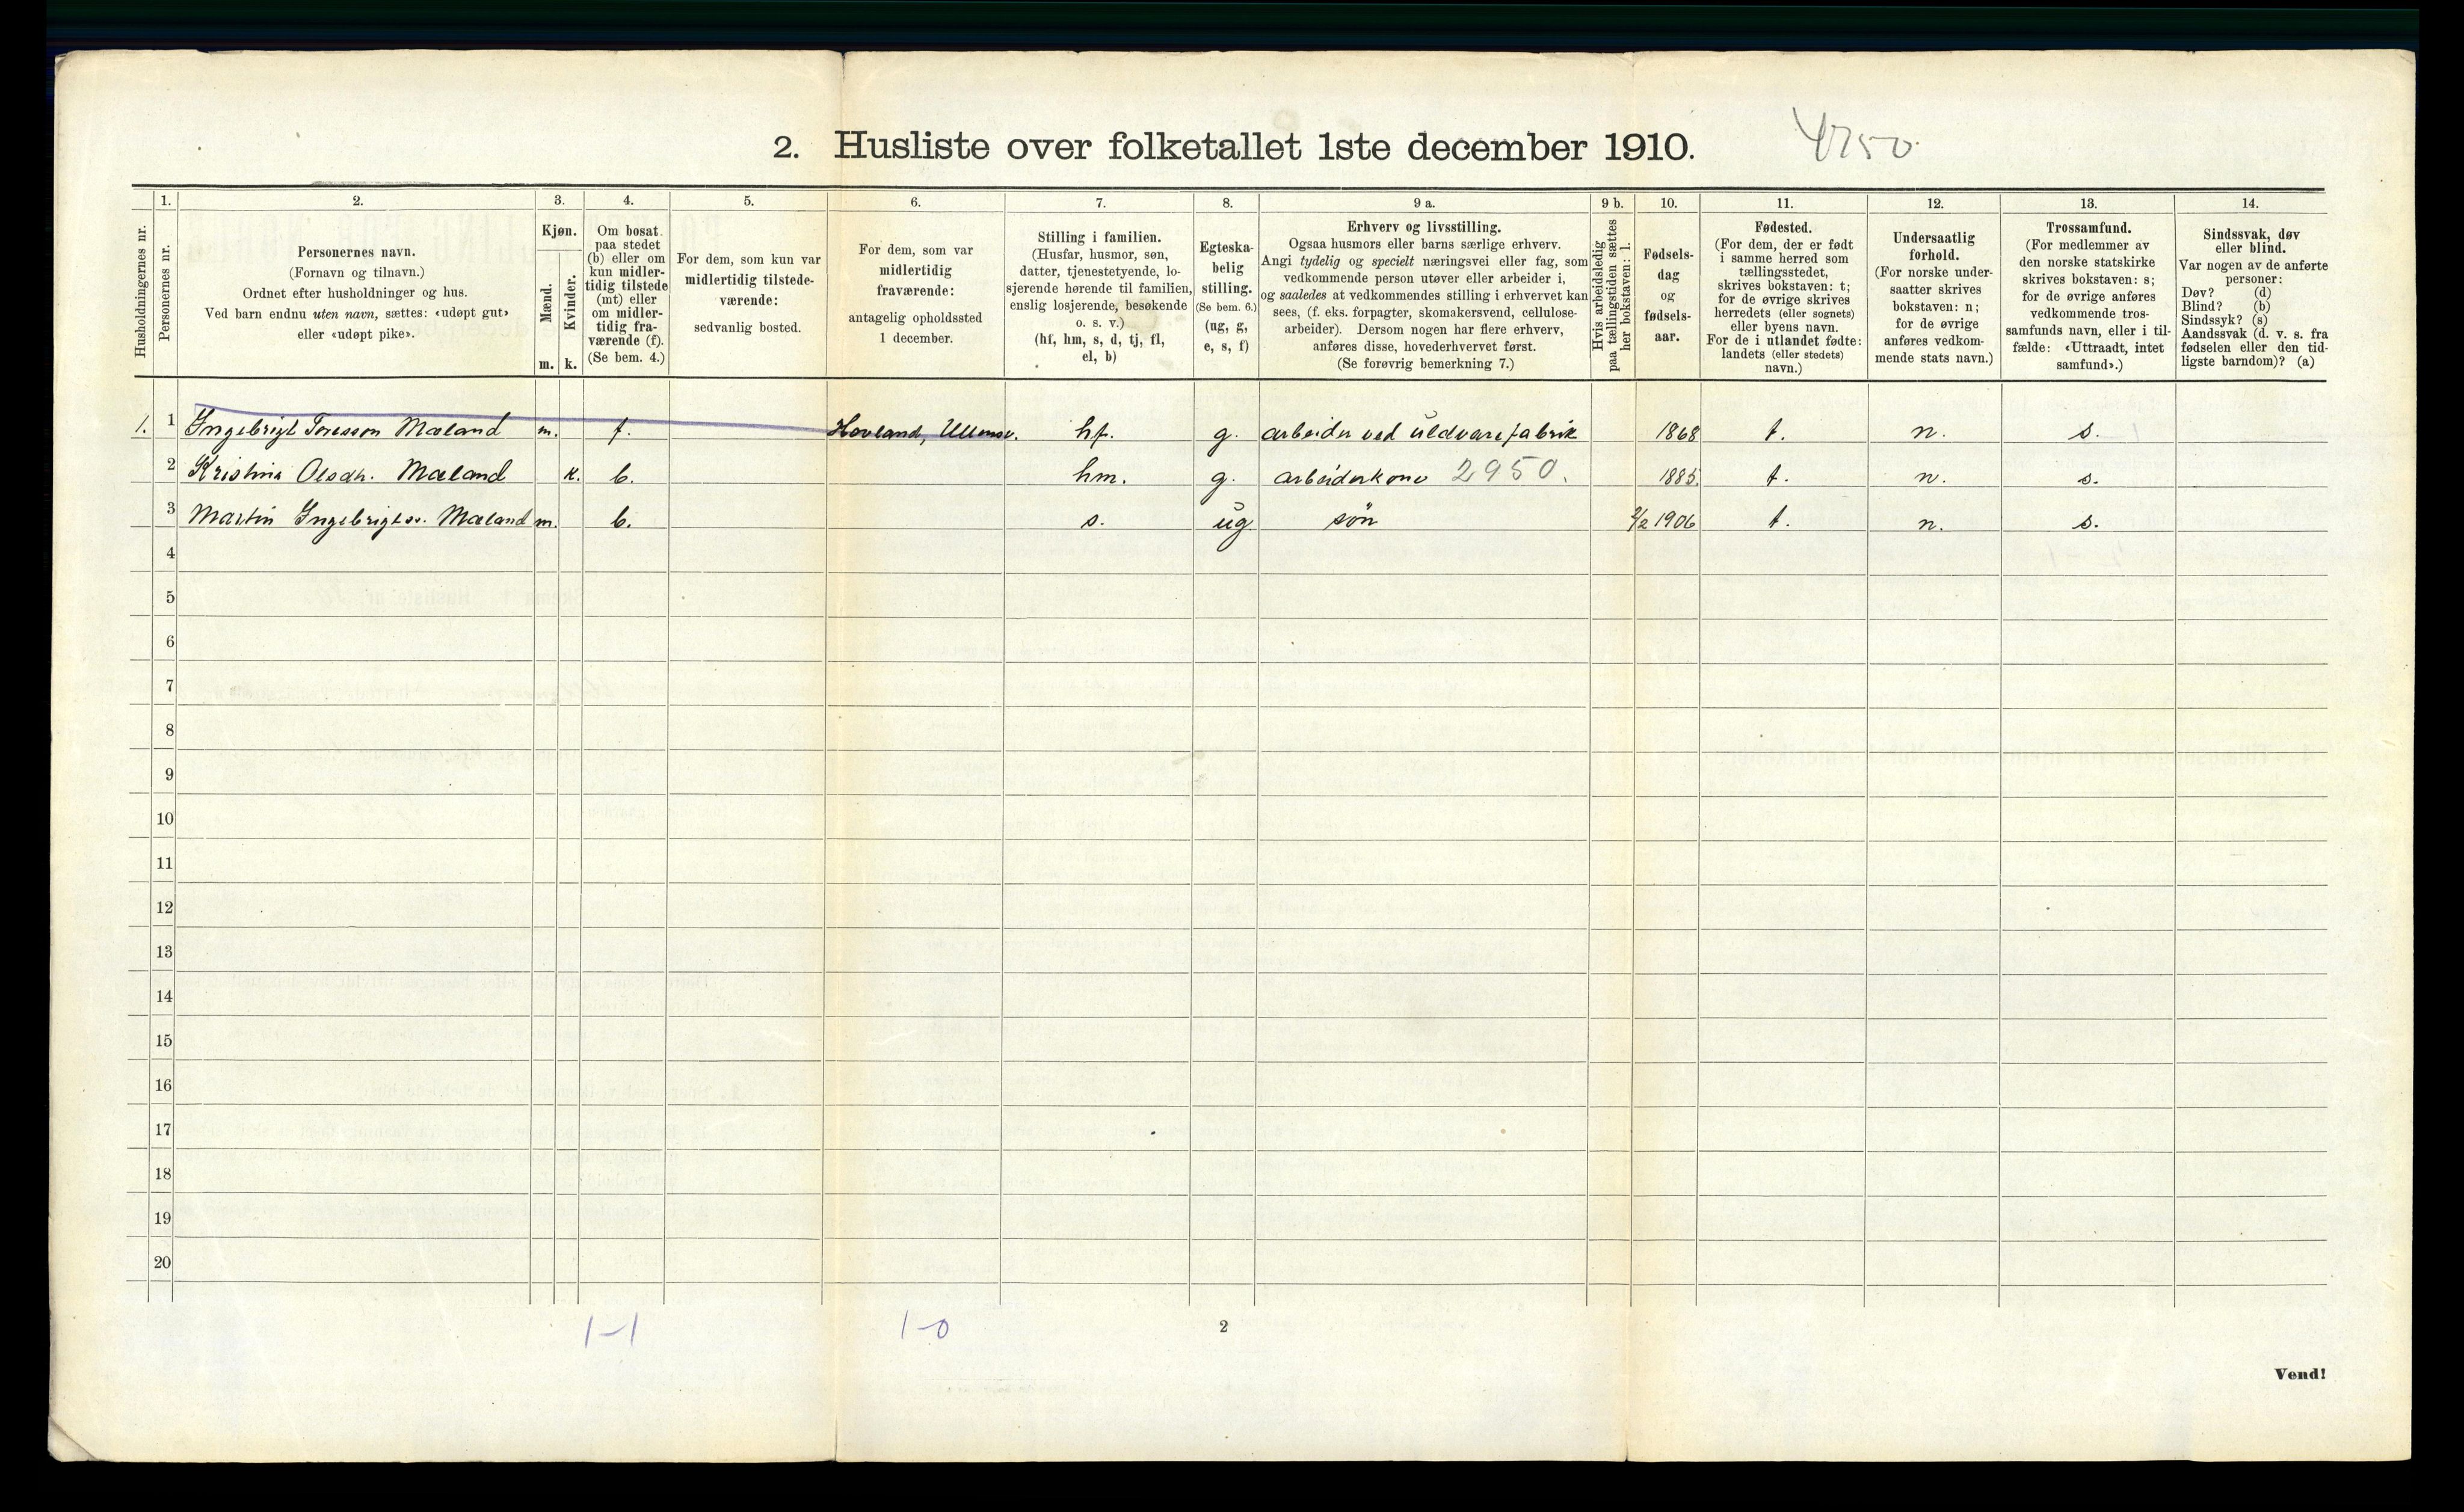 2. Husliste over folketallet 1ste december 1910.
1. 2. 3. 4. 5. 6. 7. 8. 9 a. 9 b. 10. 11. 12. 13. 14.
Husholdningernes nr.
Personernes nr.
Personernes navn.
(Fornavn og tilnavn.)
Ordnet efter husholdninger og hus.
Ved barn endnu uten navn, sættes: «udøpt gut»
eller «udøpt pike».
Kjøn.
Mænd.
Kvinder.
m. k.
Om bosat
paa stedet
(b) eller om
kun midler-
tidig tilstede
(mt) eller
om midler-
tidig fra-
værende (f).
(Se bem. 4.)
For dem, som kun var
midlertidig tilstede-
værende:
sedvanlig bosted.
For dem, som var
midlertidig
fraværende:
antagelig opholdssted
1 december.
Stilling i familien.
(Husfar, husmor, søn,
datter, tjenestetyende, lo-
sjerende hørende til familien,
enslig losjerende, besøkende
o. s. v.)
(hf, hm, s, d, tj, fl,
el, b)
Egteska-
belig
stilling.
(Se bem. 6.)
(ug, g,
e, s, f)
Erhverv og livsstilling.
Ogsaa husmors eller barns særlige erhverv.
Angi tydelig og specielt næringsvei eller fag, som
vedkommende person utøver eller arbeider i,
og saaledes at vedkommendes stilling i erhvervet kan
sees, (f. eks. forpagter, skomakersvend, cellulose-
arbeider). Dersom nogen har flere erhverv,
anføres disse, hovederhvervet først.
(Se forøvrig bemerkning 7.)
Hvis arbeidsledig
paa tællingstiden sættes
her bokstaven: l.
Fødsels-
dag
og
fødsels-
aar.
Fødested.
(For dem, der er født
i samme herred som
tællingsstedet,
skrives bokstaven: t;
for de øvrige skrives
herredets (eller sognets)
eller byens navn.
For de i utlandet fødte:
landets (eller stedets)
navn.)
Undersaatlig
forhold.
(For norske under-
saatter skrives
bokstaven: n;
for de øvrige
anføres vedkom-
mende stats navn.)
Trossamfund.
(For medlemmer av
den norske statskirke
skrives bokstaven: s;
for de øvrige anføres
vedkommende tros-
samfunds navn, eller i til-
fælde: «Uttraadt, intet
samfund».)
Sindssvak, døv
eller blind.
Var nogen av de anførte
personer:
Døv? (d)
Blind? (b)
Sindssyk? (s)
Aandssvak (d. v. s. fra
fødselen eller den tid-
ligste barndom)? (a)
1. 1 Ingebrigt Toresson Mæland m. f. Hovland, Ullensv. hf. g. arbeider ved uldvarefabrik 1868 t. n. s.
2 Kristina Olsdh. Mæland k. b. hm. g. arbeiderkone 2950. 1885. t. n. s.
3 Martin Ingebrigtss. Mæland m. b. s. ug søn 2/2 1906 t. n. s.
4
5
6
7
8
9
10
11
12
13
14
15
16
17
18
19
20
1-1 1-0
2
Vend!